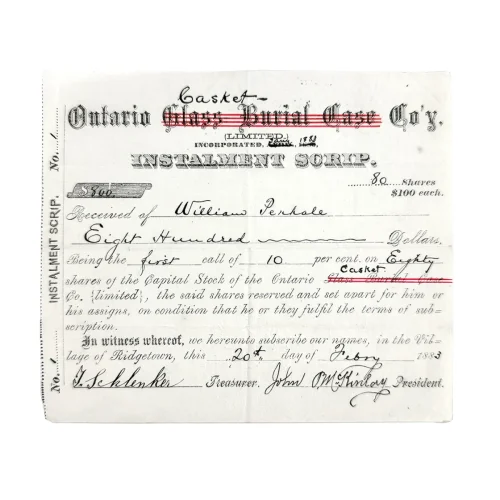 Casket-
Ontario Glass Burial Case Co'y.
(LIMITED.)
INCORPORATED, 1881
INSTALMENT SCRIP.
No. 1
INSTALMENT SCRIP.
No. 1
80 Shares
$800. $100 each.
Received of William Penhale
Eight Hundred Dollars.
Being the first call of 10 per cent. on Eighty
Casket
shares of the Capital Stock of the Ontario Glass Burial Case
Co. (limited), the said shares reserved and set apart for him or
his assigns, on condition that he or they fulfil the terms of sub-
scription.
In witness whereof, we hereunto subscribe our names, in the Vil-
lage of Ridgetown, this 20th day of Febry 1883
T. Schlenker Treasurer. John P. McKinlay President.